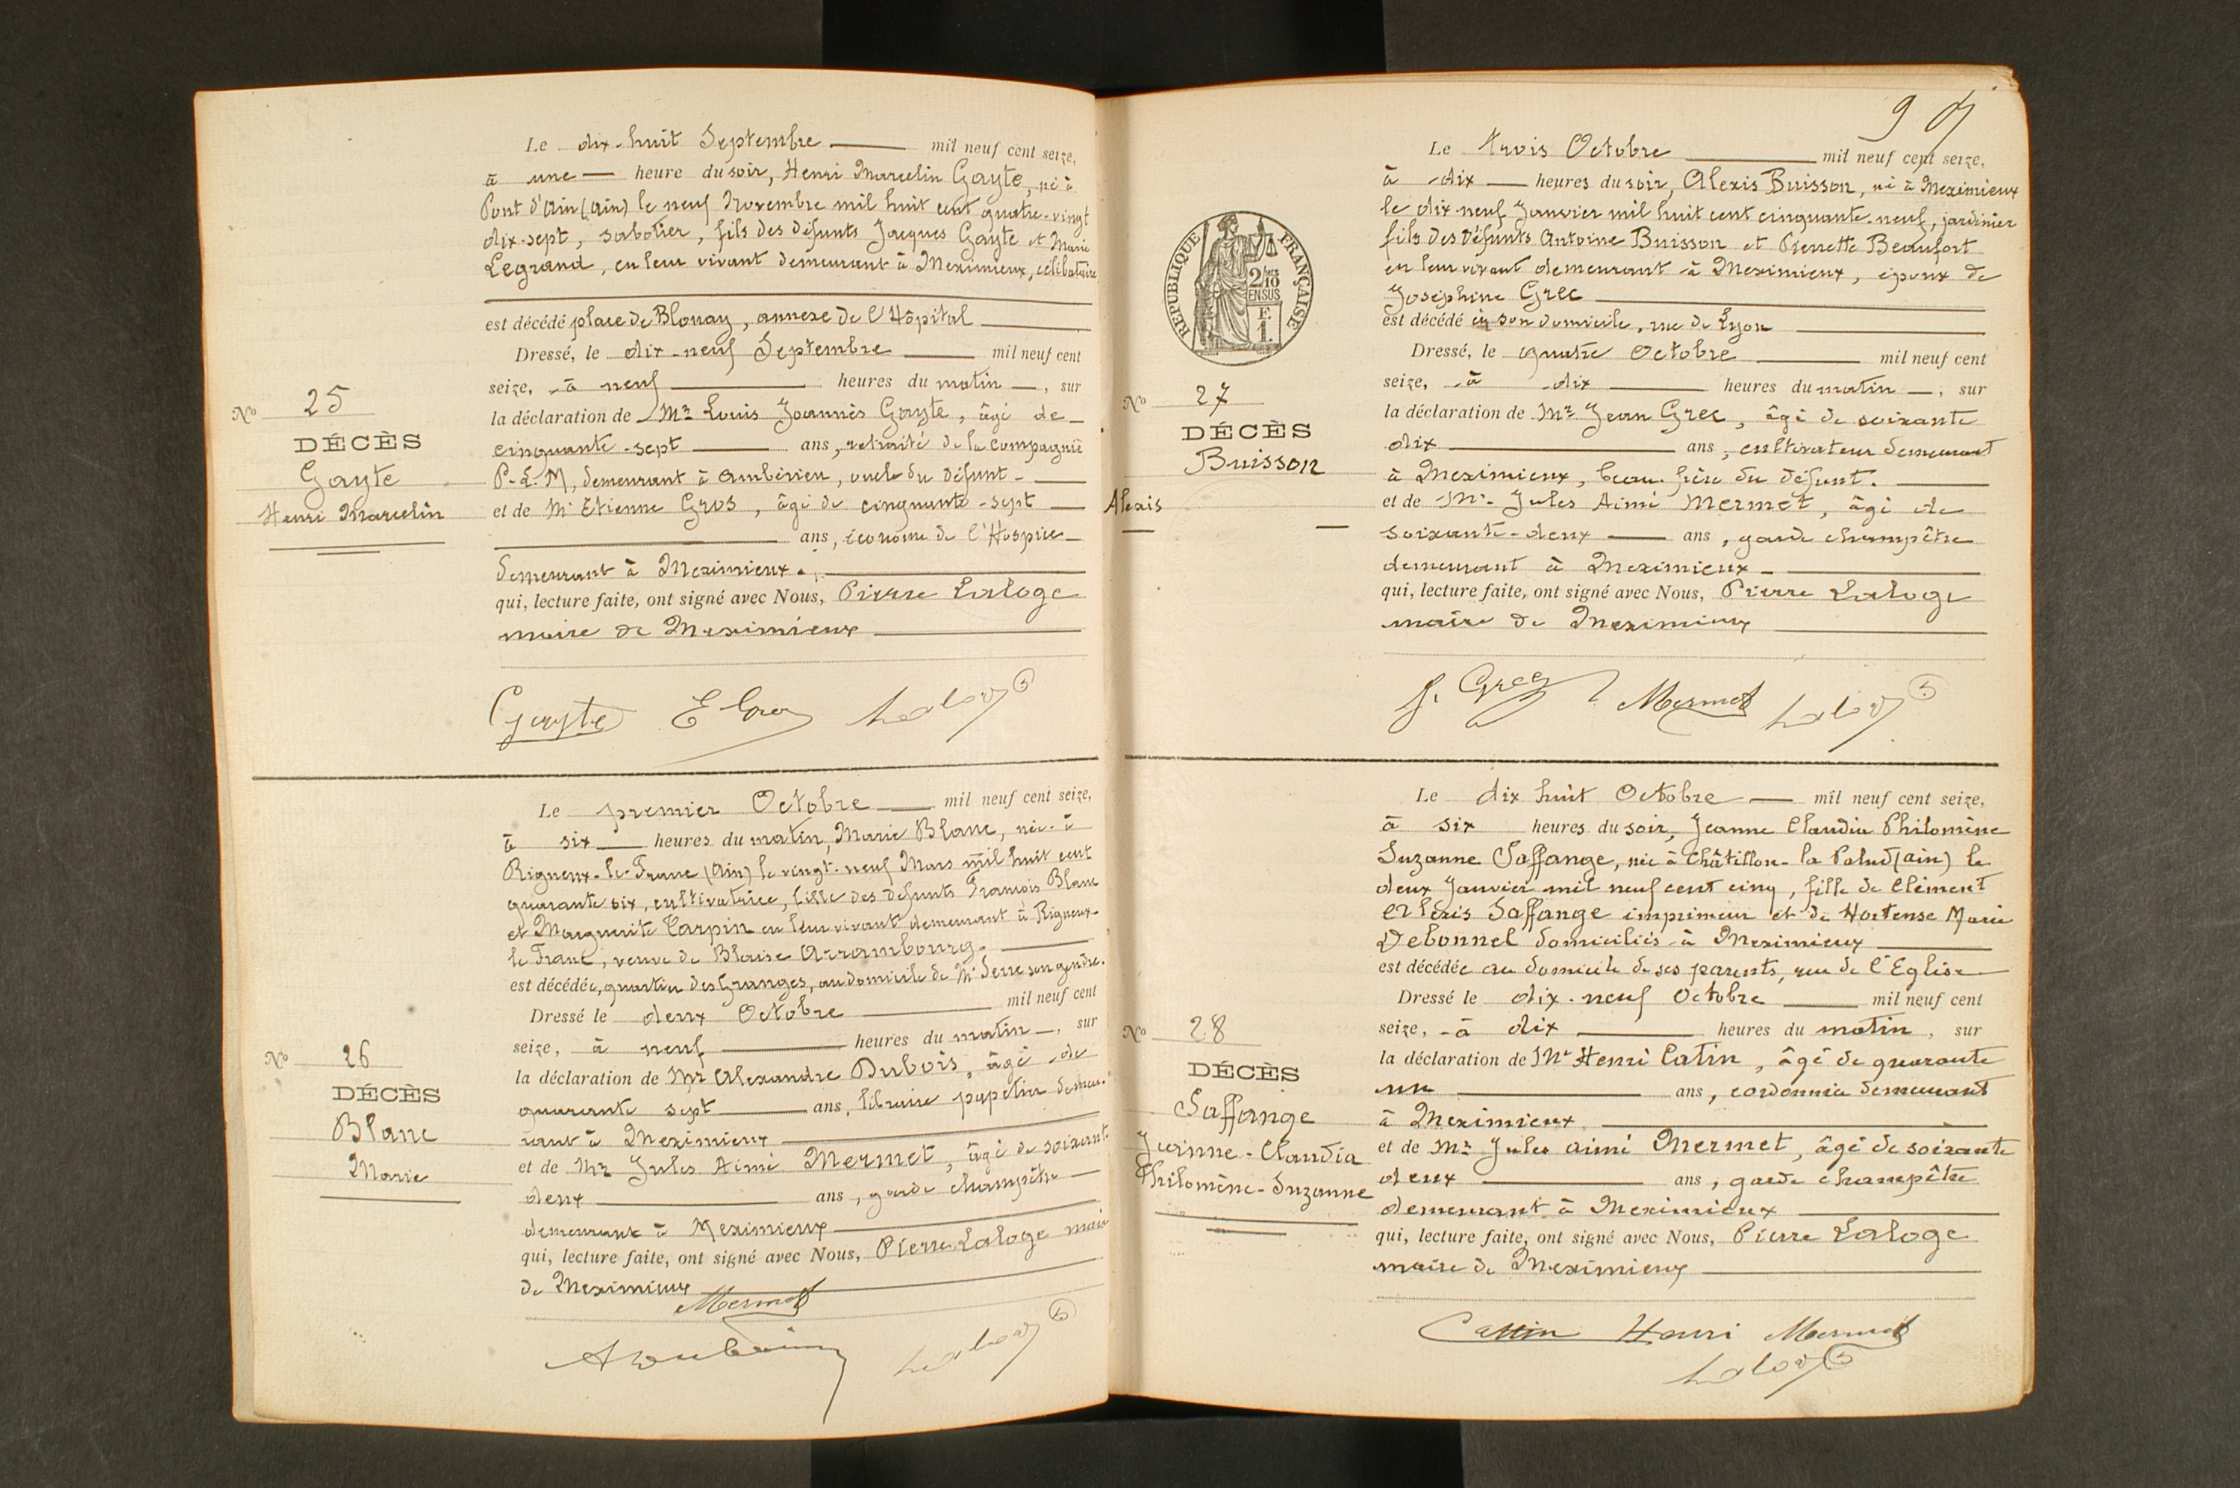 Le dix-huit Septembre mil neuf cent seize,
à une heure du soir, Henri Marcelin Gayte, né à
Pont d'Ain (Ain) le neuf Novembre mil huit cent quatre-vingt
dix-sept, sabotier, fils des défunts Jacques Gayte et Marie
Legrand, en leur vivant demeurant à Meximieux, célibataire
est décédé place de Blonay, annexe de l'Hôpital
Dressé, le dix-neuf Septembre mil neuf cent
seize, à neuf heures du matin, sur
la déclaration de Mr Louis Joannès Gayte, âgé de
cinquante-sept ans, retraité de la Compagnie
P.L.M, demeurant à Ambérieu, oncle du défunt
et de Mr Etienne Gros, âgé de cinquante-sept
ans, économe de l'Hospice
demeurant à Meximieux.
qui, lecture faite, ont signé avec Nous, Pierre Laloge
maire de Meximieux
No 25
DÉCÈS
Gayte
Henri Marcelin
Gayte E Gros Laloge
Le premier Octobre mil neuf cent seize,
à six heures du matin, Marie Blanc, née à
Rigneux-le-Franc (Ain) le vingt-neuf Mars mil huit cent
quarante six, cultivatrice, fille des défunts François Blanc
et Marguerite Carpin en leur vivant demeurant à Rigneux-
le Franc, veuve de Blaise Arrambourg.
est décédée, quartier des Granges, au domicile de Mr Serre son gendre.
Dressé le deux Octobre mil neuf cent
seize, à neuf heures du matin, sur
la déclaration de Mr Alexandre Dubois, âgé de
quarante sept ans, libraire papetier demeu-
rant à Meximieux
et de Mr Jules Aimé Mermet, âgé de soixant-
deux ans, garde champêtre
demeurant à Meximieux
qui, lecture faite, ont signé avec Nous, Pierre Laloge maire
de Meximieux
No 26
DÉCÈS
Blanc
Marie
Mermet
A Dubois Laloge
9
Le trois Octobre mil neuf cent seize,
à dix heures du soir, Alexis Buisson, né à Meximieux
le dix-neuf Janvier mil huit cent cinquante-neuf, jardinier
fils des défunts Antoine Buisson et Pierrette Beaufort
en leur vivant demeurant à Meximieux, époux de
Joséphine Grec
est décédé en son domicile, rue de Lyon
Dressé, le quatre Octobre mil neuf cent
seize, à dix heures du matin, sur
la déclaration de Mr Jean Grec, âgé de soixante
dix ans, cultivateur demeurant
à Meximieux, beau-frère du défunt.
et de Mr Jules Aimé Mermet, âgé de
soixante-deux ans, garde champêtre
demeurant à Meximieux
qui, lecture faite, ont signé avec Nous, Pierre Laloge
maire de Meximieux
RÉPUBLIQUE FRANÇAISE
2/10
EN SUS
F.
1.
No 27
DÉCÈS
Buisson
Alexis
J. Grec Mermet Laloge
Le dix huit Octobre mil neuf cent seize,
à six heures du soir, Jeanne Claudia Philomène
Suzanne Saffange, née à Châtillon-la Palud (Ain) le
deux Janvier mil neuf cent cinq, fille de Clément
Alexis Saffange imprimeur et de Hortense Marie
Debonnel domiciliés à Meximieux
est décédée au domicile de ses parents, rue de l'Eglise
Dressé le dix-neuf Octobre mil neuf cent
seize, à dix heures du matin, sur
la déclaration de Mr Henri Catin, âgé de quarante
un ans, cordonnier demeurant
à Meximieux
et de Mr Jules Aimé Mermet, âgé de soixante
deux ans, garde champêtre
demeurant à Meximieux
qui, lecture faite, ont signé avec Nous, Pierre Laloge
maire de Meximieux
No 28
DÉCÈS
Saffange
Jeanne-Claudia
Philomène-Suzanne
Cattin Henri Mermet
Laloge